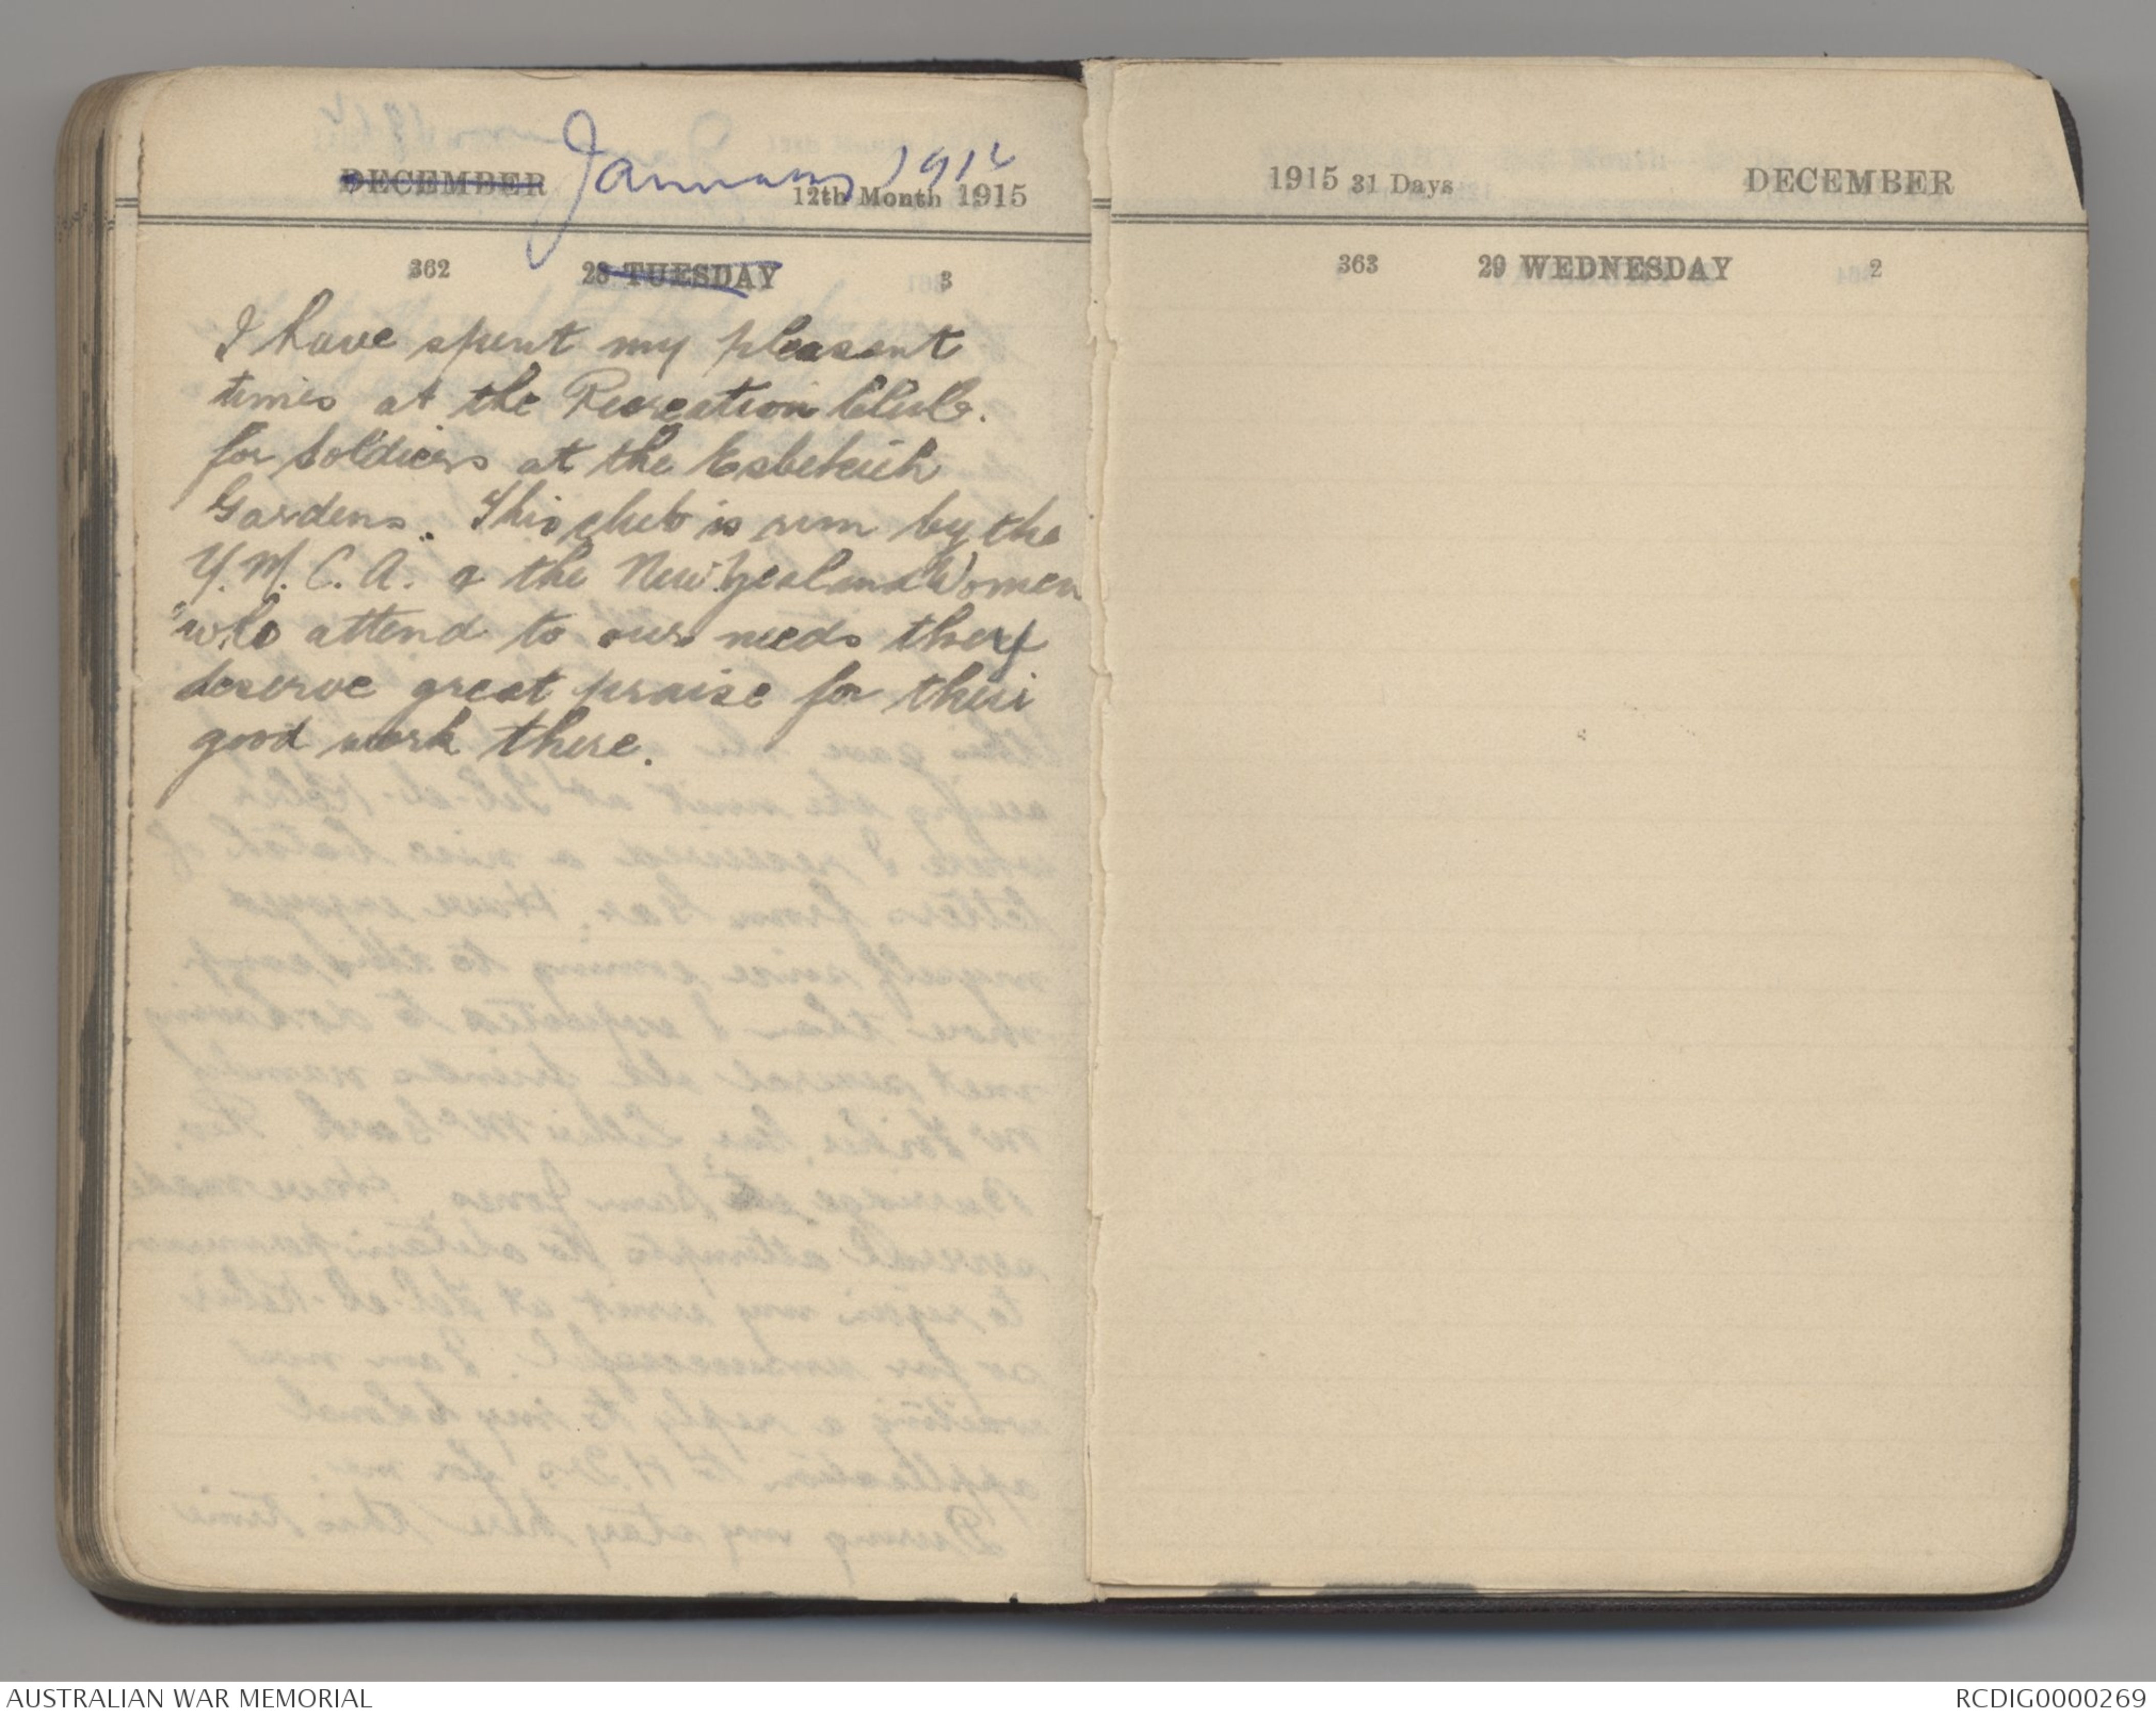 DECEMBER January 1916
12th Month 1915
362 28 TUESDAY 3
I have spent my pleasant
times at the Recreation Club.
for Soldiers at the Esbekieh
Gardens. This club is run by the
Y.M.C.A. & the New Zealand Women
who attend to our needs they
deserve great praise for their
good work there.
1915 31 Days DECEMBER
363 29 WEDNESDAY 2
AUSTRALIAN WAR MEMORIAL
RCDIG0000269